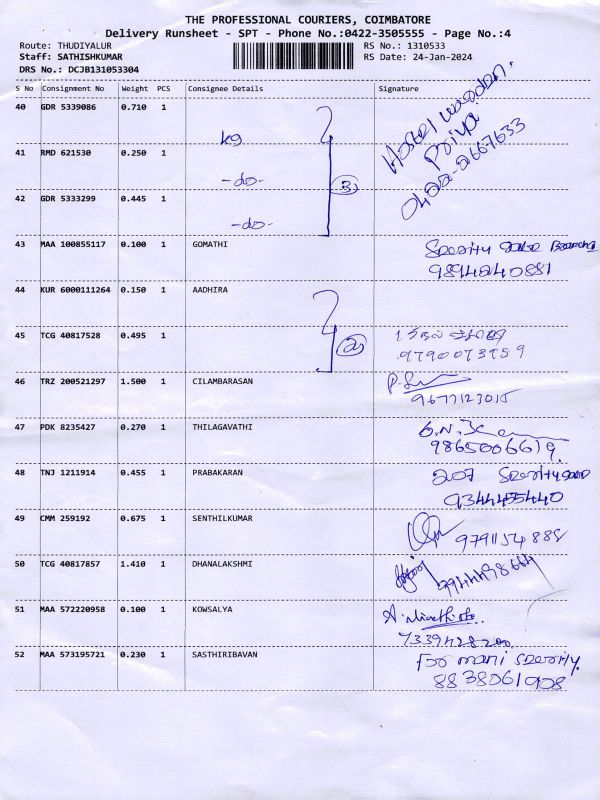 THE PROFESSIONAL COURIERS, COIMBATORE
Delivery Runsheet - SPT - Phone No.:0422-3505555 - Page No.:4
Route: THUDIYALUR RS No.: 1310533
Staff: SATHISHKUMAR RS Date: 24-Jan-2024
DRS No.: DCJB131053304
S No Consignment No Weight PCS Consignee Details Signature
40 GDR 5339086 0.710 1 kg Hostel warden. Priya
41 RMD 621530 0.250 1 -do- 3
42 GDR 5333299 0.445 1 -do-
43 MAA 100855117 0.100 1 GOMATHI
9894240881
44 KUR 6000111264 0.150 1 AADHIRA
45 TCG 40817528 0.495 1 2
9790073759
46 TRZ 200521297 1.500 1 CILAMBARASAN
9677123015
47 PDK 8235427 0.270 1 THILAGAVATHI
9865006619
48 TNJ 1211914 0.455 1 PRABAKARAN
9344455440
49 CMM 259192 0.675 1 SENTHILKUMAR 9791154888
50 TCG 40817857 1.410 1 DHANALAKSHMI
51 MAA 572220958 0.100 1 KOWSALYA
52 MAA 573195721 0.230 1 SASTHIRIBAVAN For mani
8838061908